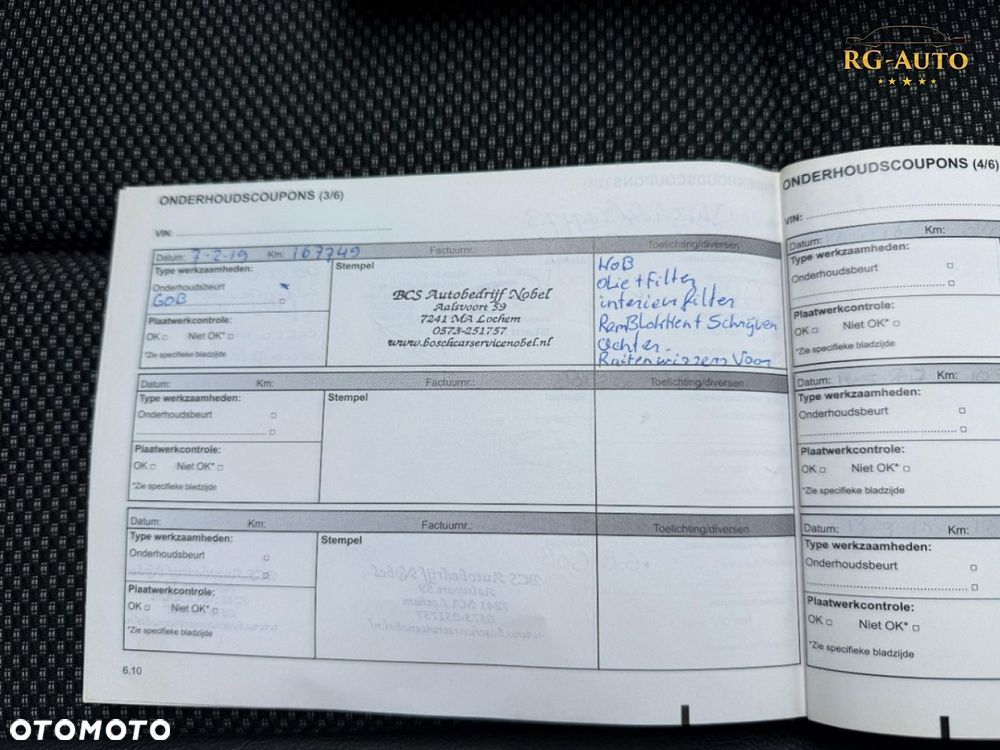 RG-AUTO
ONDERHOUDSCOUPONS (3/6)
VIN:
Datum: 7-2-19 Km: 167749 Factuurnr.: Toelichting/diversen
Type werkzaamheden:
Onderhoudsbeurt
GOB
Plaatwerkcontrole:
OK Niet OK*
*Zie specifieke bladzijde
Stempel
BCS Autobedrijf Nobel
Aalsvoort 59
7241 MA Lochem
0573-251757
www.boschcarservicenobel.nl
NOB
olie + Filter
interieur filter
Schrijven
Achter.
Ruitenwissers Voor
Datum: Km: Factuurnr.: Toelichting/diversen
Type werkzaamheden:
Onderhoudsbeurt
Plaatwerkcontrole:
OK Niet OK*
*Zie specifieke bladzijde
Stempel
Datum: Km: Factuurnr.: Toelichting/diversen
Type werkzaamheden:
Onderhoudsbeurt
Plaatwerkcontrole:
OK Niet OK*
*Zie specifieke bladzijde
Stempel
6.10
ONDERHOUDSCOUPONS (4/6)
VIN:
Datum: Km:
Type werkzaamheden:
Onderhoudsbeurt
Plaatwerkcontrole:
OK Niet OK*
*Zie specifieke bladzijde
Datum: Km:
Type werkzaamheden:
Onderhoudsbeurt
Plaatwerkcontrole:
OK Niet OK*
*Zie specifieke bladzijde
Datum: Km:
Type werkzaamheden:
Onderhoudsbeurt
Plaatwerkcontrole:
OK Niet OK*
*Zie specifieke bladzijde
OTOMOTO